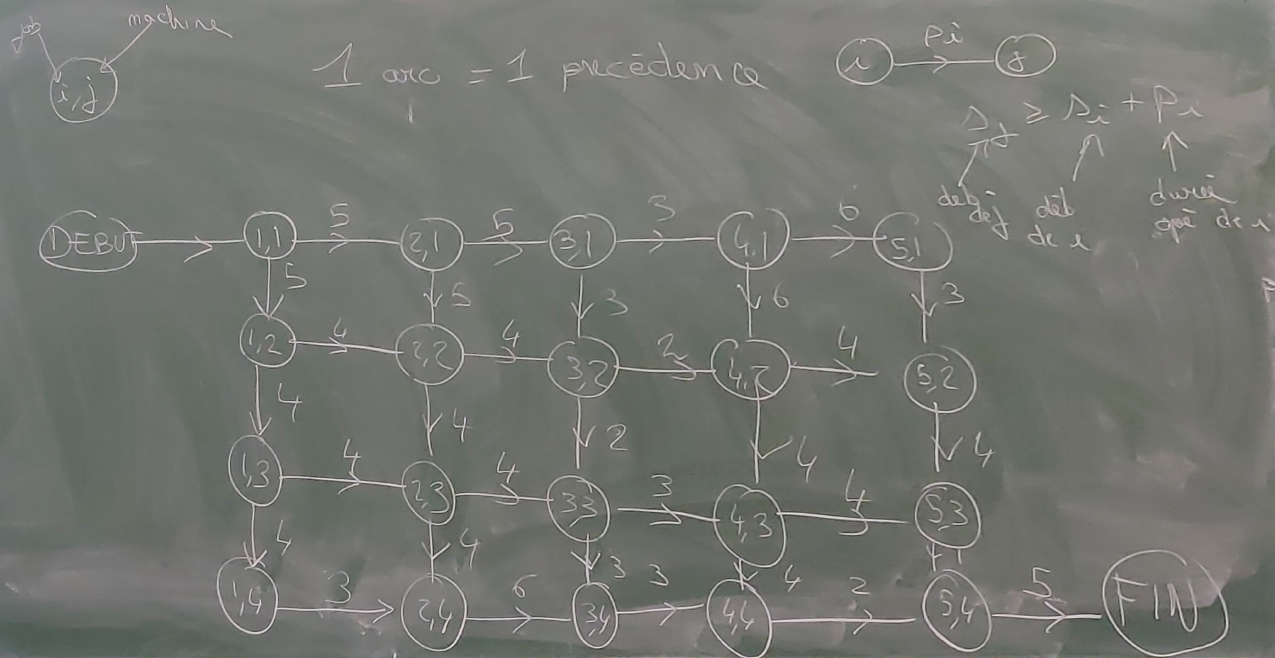 job machine
i,j
1 arc = 1 précédence
i pi j
sj ≥ si + pi
déb de j déb de i durée opé de i
DEBUT 1,1 5 2,1 5 3,1 3 4,1 6 5,1
5 5 3 6 3
1,2 4 2,2 4 3,2 2 4,2 4 5,2
4 4 2 4 4
1,3 4 2,3 4 3,3 3 4,3 4 5,3
4 4 3 4 1
1,4 3 2,4 6 3,4 3 4,4 2 5,4 5 FIN